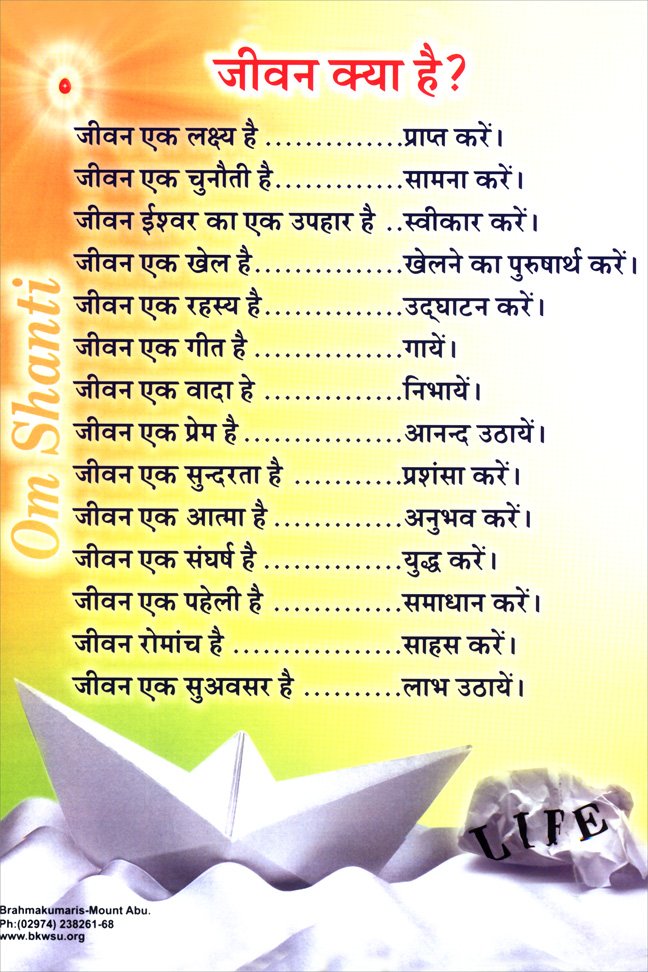 जीवन क्या है?
जीवन एक लक्ष्य है ..............प्राप्त करें।
जीवन एक चुनौती है.............सामना करें।
जीवन ईश्वर का एक उपहार है ..स्वीकार करें।
जीवन एक खेल है...............खेलने का पुरुषार्थ करें।
जीवन एक रहस्य है..............उद्घाटन करें।
जीवन एक गीत है ...............गायें।
जीवन एक वादा हे ..............निभायें।
जीवन एक प्रेम है................आनन्द उठायें।
जीवन एक सुन्दरता है ...........प्रशंसा करें।
जीवन एक आत्मा है .............अनुभव करें।
जीवन एक संघर्ष है ..............युद्ध करें।
जीवन एक पहेली है .............समाधान करें।
जीवन रोमांच है .................साहस करें।
जीवन एक सुअवसर है ..........लाभ उठायें।
Om Shanti
LIFE
Brahmakumaris-Mount Abu.
Ph:(02974) 238261-68
www.bkwsu.org